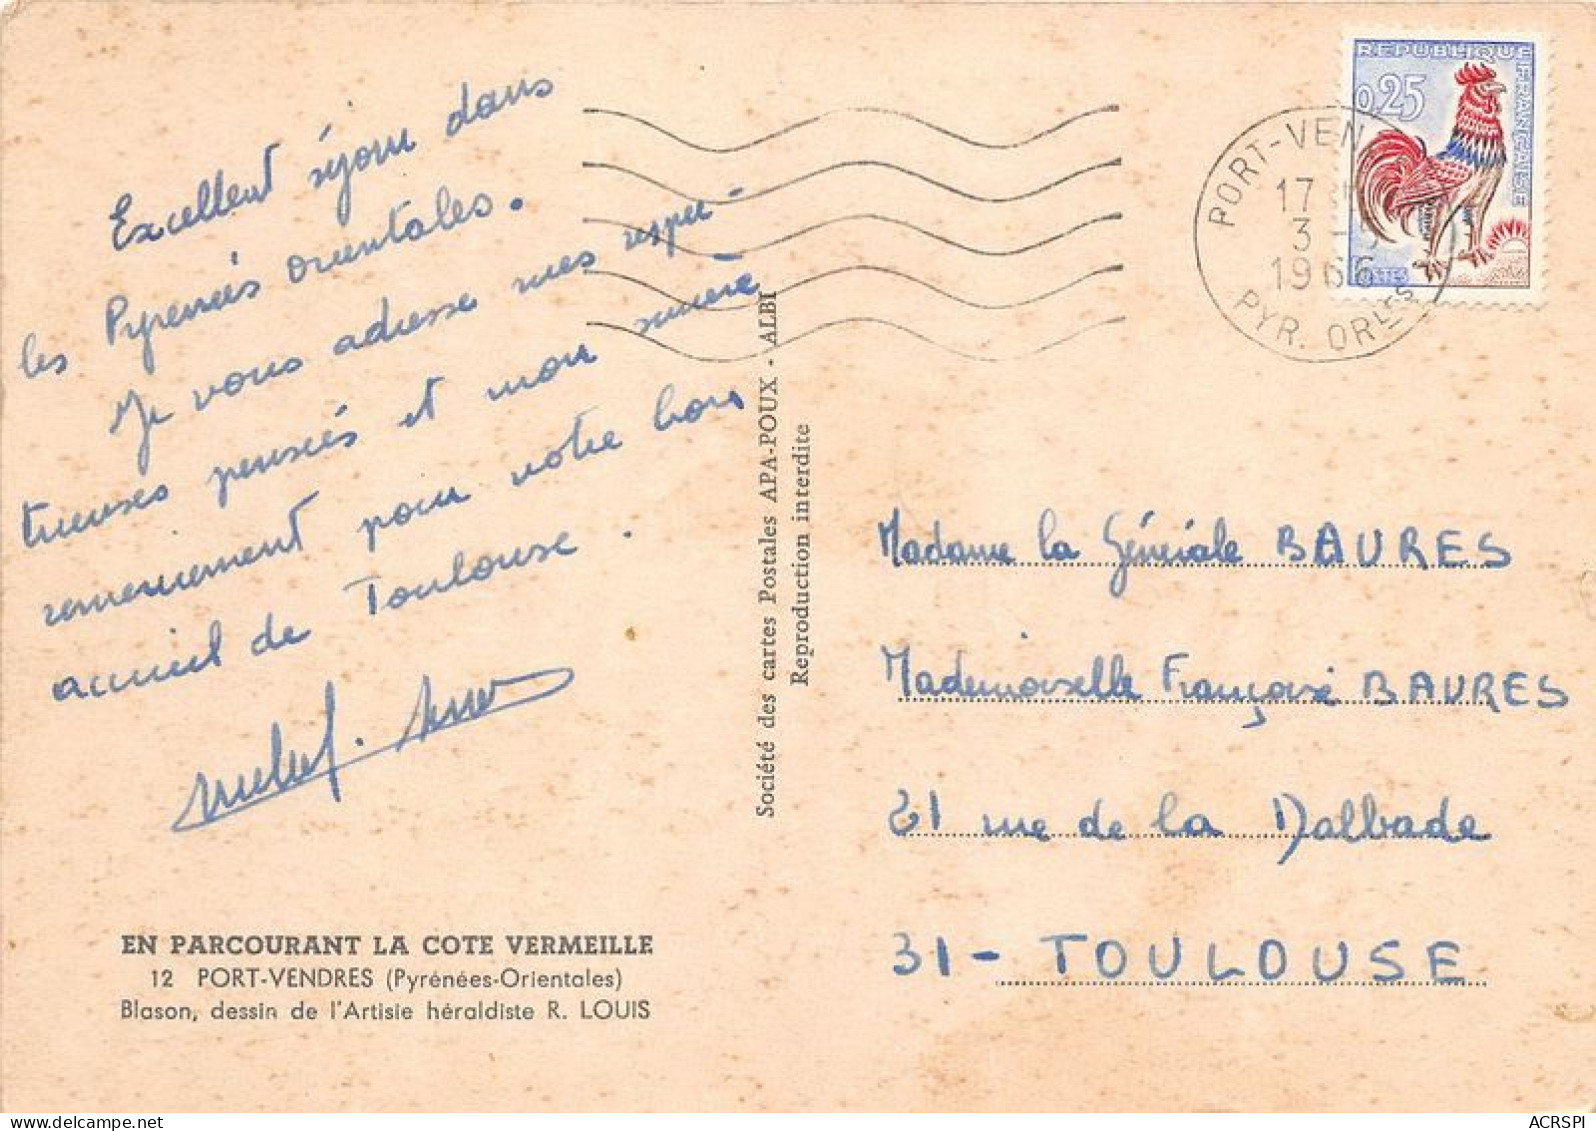 Excellent séjour dans
les Pyrénées orientales.
Je vous adresse mes respec-
tueuses pensées et mon sincère
remerciement pour votre bon
accueil de Toulouse.
EN PARCOURANT LA COTE VERMEILLE
12 PORT-VENDRES (Pyrénées-Orientales)
Blason, dessin de l'Artiste héraldiste R. LOUIS
Société des cartes Postales APA-POUX - ALBI
Reproduction interdite
REPUBLIQUE FRANÇAISE
0,25
POSTES
PORT-VEN
17
3 - 
1966
PYR. ORLES
Madame la Générale BAURES
Mademoiselle Françoise BAURES
21 rue de la Dalbade
31 - TOULOUSE
delcampe.net
ACRSPI